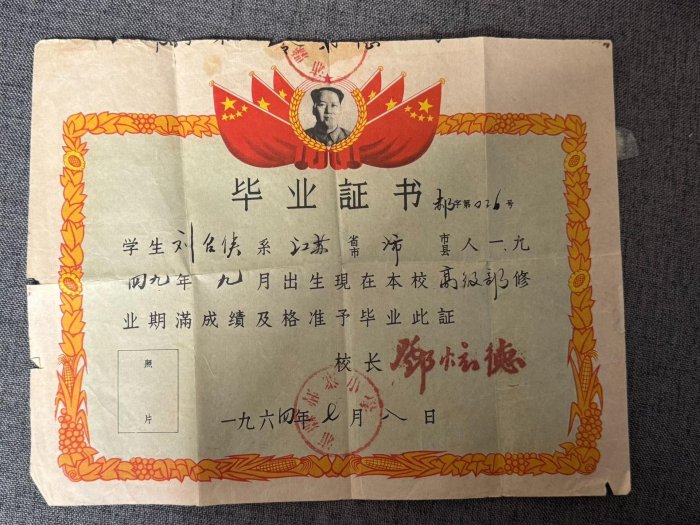 毕业証书
字第026号
学生刘启侯系江苏省市沛市县人一九
四九年九月出生現在本校高级部修
业期滿成績及格准予毕业此証
校长鄧炫德
照片
一九六四年七月八日